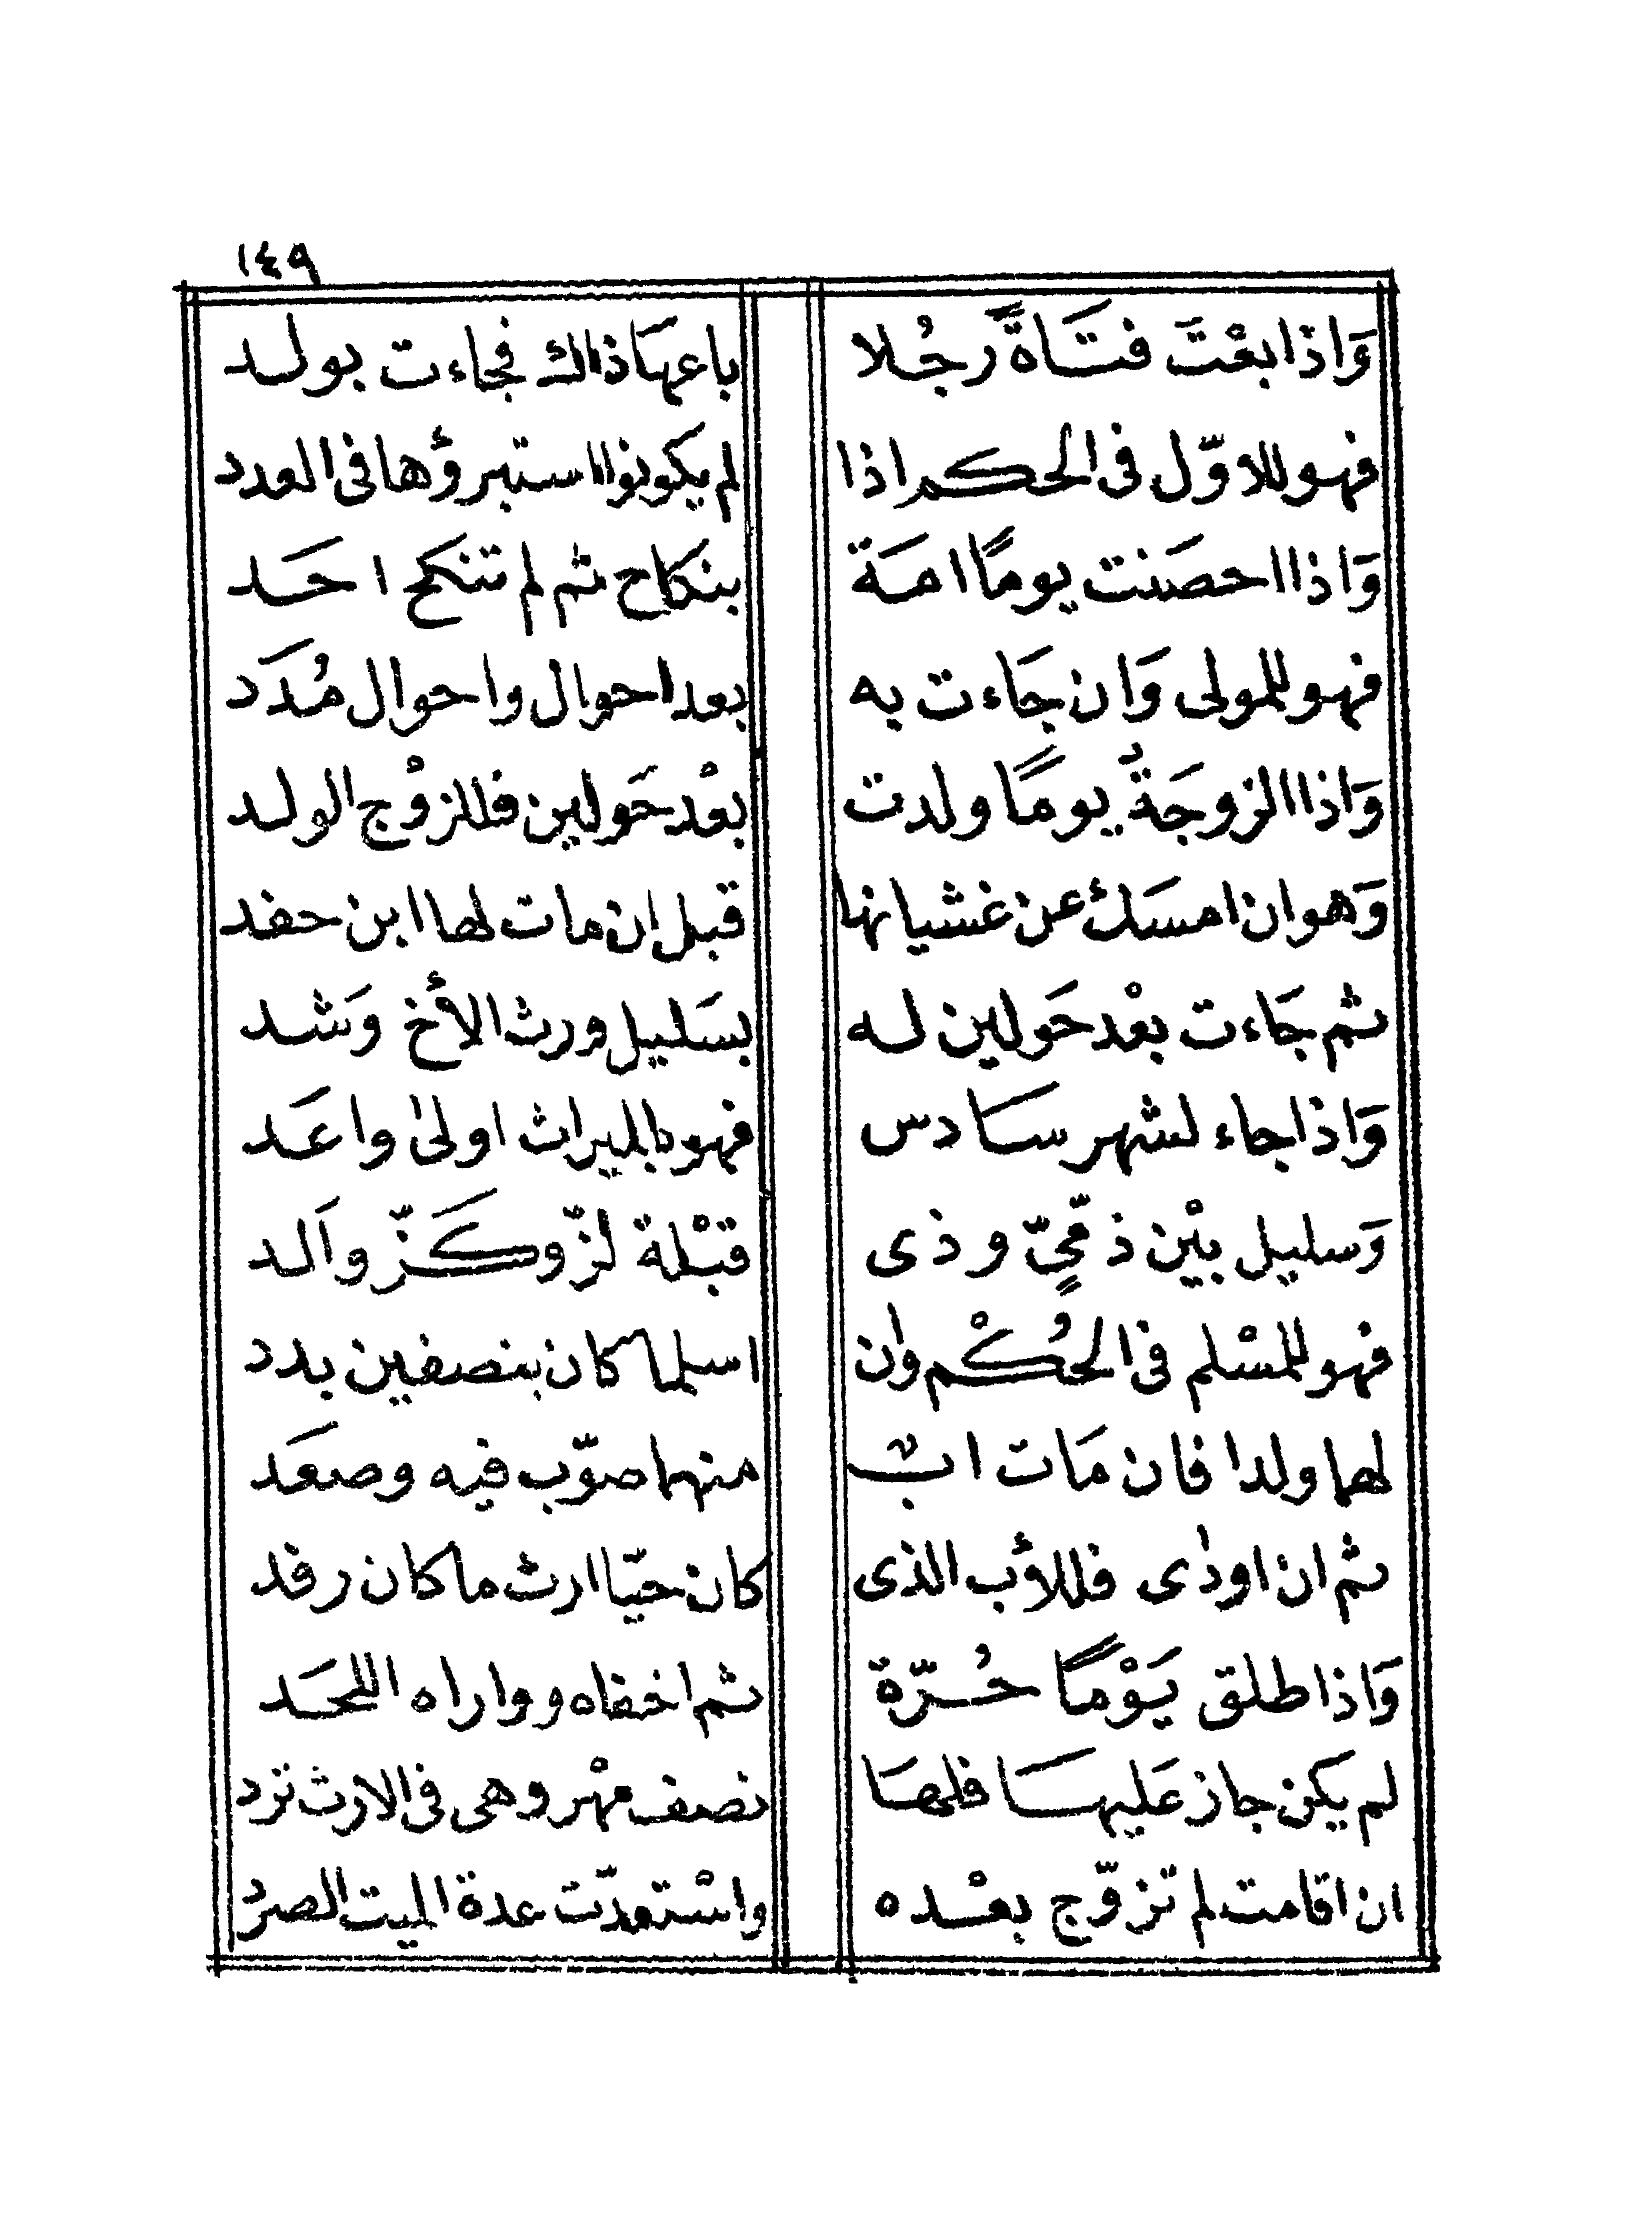 ١٤٩
وَاذا بعْتَ فتَاةً رجُلا باعهَا ذاك فجاءت بولد
فهو للاوّل فى الحكم اذا لم يكونوا استبرؤها فى العدد
وَاذا احصَنت يومًا امَة بنكاح ثم لم تنكح احَد
فهو للمولى وَان جَاءت به بعد احوال واحوال مُدَد
وَاذا الزوجَةُ يومًا ولدت بعْد حَولين فللزوْج الولد
وَهو ان امسَك عن غشيانها قبل ان مات لها ابن حفد
ثم جَاءت بعْد حَولين له بسَليل ورث الأخ وَشد
وَاذا جاء لشهر سَادس فهو بالميراث اولى واعَد
وَسليل بيْن ذمّىٍّ وذى قبْلة لزّ وكَزّ واَلد
فهو للمسْلم فى الحُكْم وان اسلما كان بنصفين بدد
لهما ولدا فان مَات ابٌ منهما صوّب فيه وصعَد
ثم ان اوذى فللأب الذى كان حيّا ارث ما كان رفد
وَاذا طلق يَوْمًا حُرّة ثم اخفاه وواراه اللحَد
لم يكن جاز عَليهَا فلهَا نصف مهْر وهى فى الارث ترد
ان اقامت لم تزوّج بعْده واسْتعدّت عدة الميت الصرد